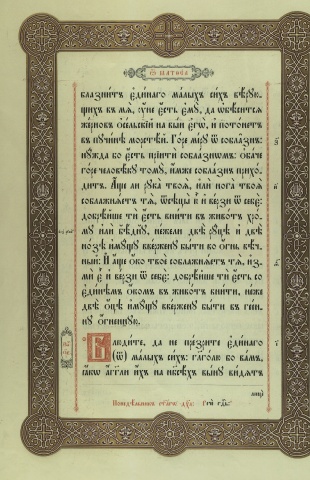 Ѿ МАТѲЕА
блазни́тъ є҆ди́наго ма́лыхъ си́хъ вѣ́рꙋю-
щихъ въ мѧ̀, ᲂу҆́не є҆́сть є҆мꙋ̀, да ѡ҆бѣ́ситсѧ
же́рновъ ѻ҆се́льскїй на вы́и є҆гѡ̀, и҆ пото́нетъ
въ пꙋчи́нѣ морстѣ́й. Го́ре мі́рꙋ ѿ собла̑знъ:
нꙋ́жда бо є҆́сть прїитѝ собла́знѡмъ: ѻ҆ба́че
го́ре человѣ́кꙋ томꙋ̀, и҆́мже собла́знъ прихо́-
дитъ. А҆́ще ли рꙋка̀ твоѧ̀, и҆лѝ нога̀ твоѧ̀
соблажнѧ́етъ тѧ̀, ѿсѣцы̀ ю҆̀ и҆ ве́рзи ѿ себє̀:
добрѣ́йше тѝ є҆́сть вни́ти въ живо́тъ хро́-
мꙋ и҆лѝ бѣ́днꙋ, не́жели двѣ̀ рꙋ́цѣ и҆ двѣ̀
но́зѣ и҆мꙋ́щꙋ вве́рженꙋ бы́ти во ѻ҆́гнь вѣ́ч-
ный: И҆ а҆́ще ѻ҆́ко твоѐ соблажнѧ́етъ тѧ̀, и҆з-
мѝ є҆̀ и҆ ве́рзи ѿ себє̀: добрѣ́йше тѝ є҆́сть со
є҆ди́нѣмъ ѻ҆́комъ въ живо́тъ вни́ти, не́же
двѣ̀ ѻ҆́цѣ и҆мꙋ́щꙋ вве́рженꙋ бы́ти въ гее́н-
нꙋ ѻ҆́гненнꙋю.
Блюди́те, да не пре́зрите є҆ди́наго
(ѿ) ма́лыхъ си́хъ: гл҃го́лю бо ва́мъ,
ꙗ҆́кѡ а҆́гг҃ли и҆́хъ на нб҃сѣ́хъ вы́нꙋ ви́дѧтъ